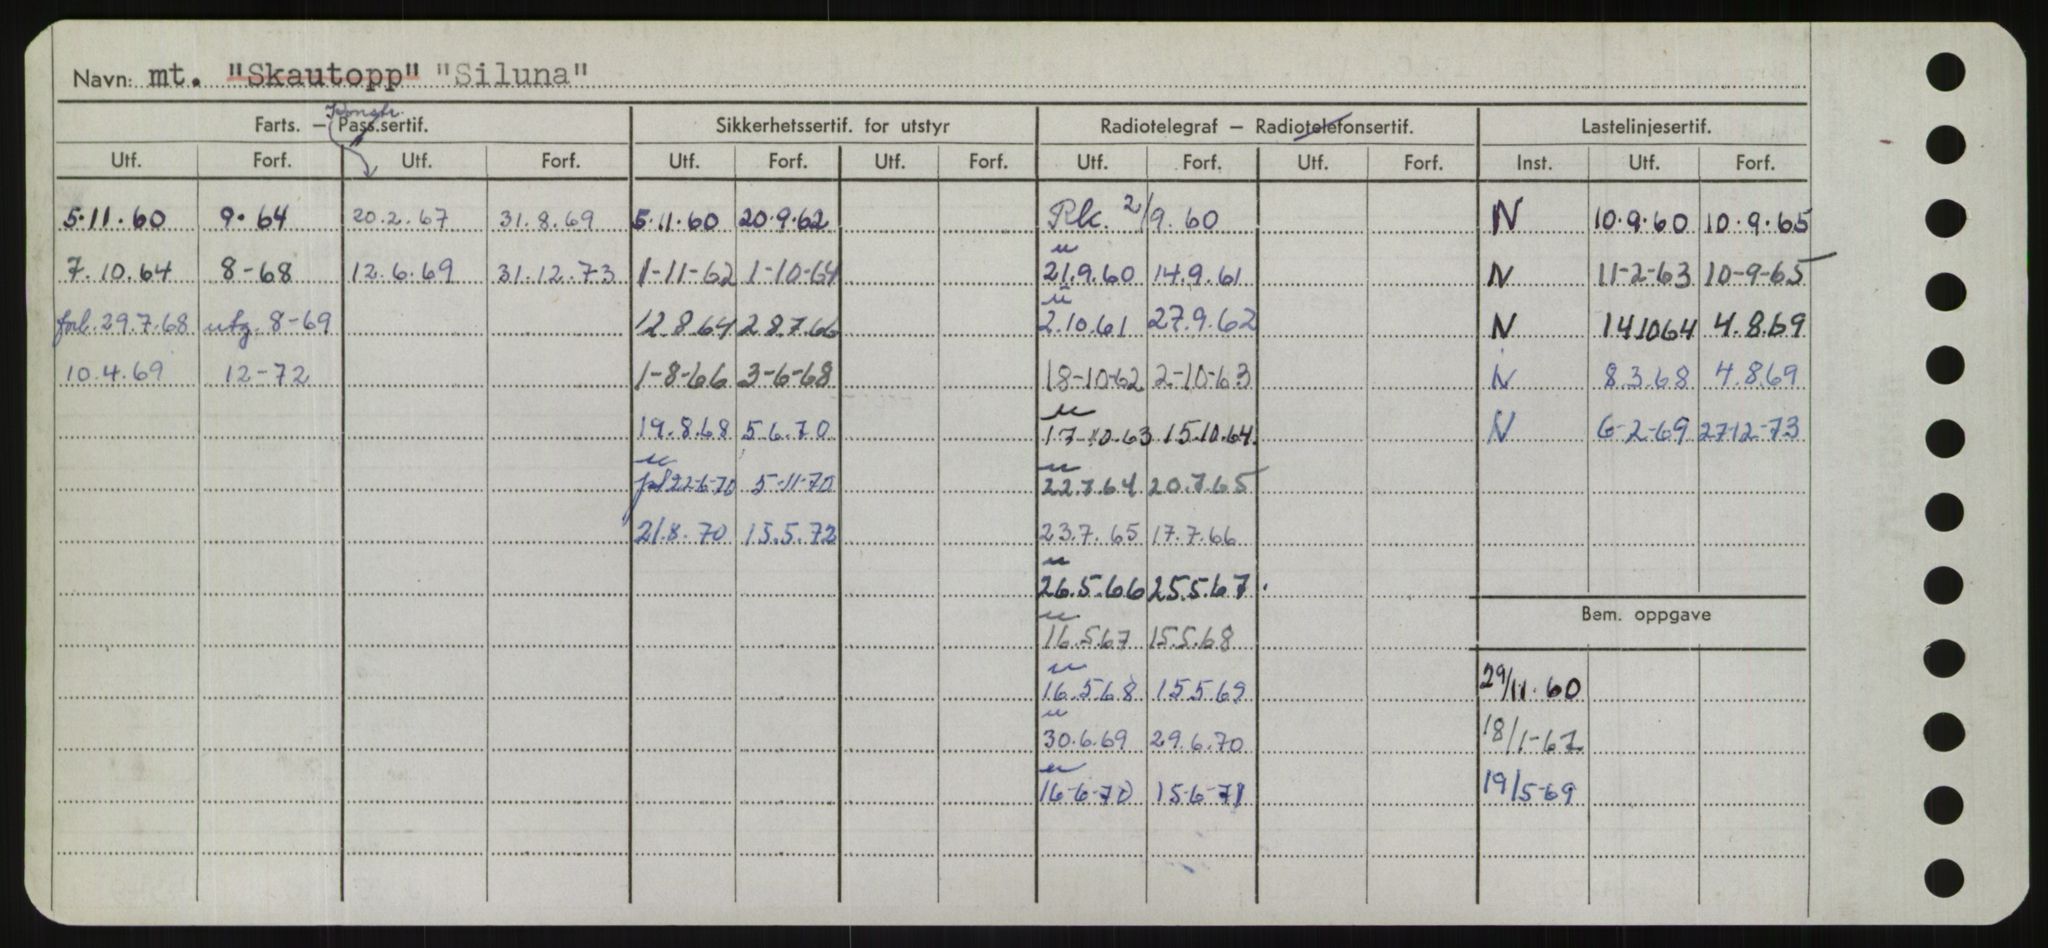 Navn: mt. "Skautopp" "Siluna"
Konstr.
Farts. — Pass.sertif. Sikkerhetssertif. for utstyr Radiotelegraf — Radiotelefonsertif. Lastelinjesertif.
Utf. Forf. Utf. Forf. Utf. Forf. Utf. Forf. Utf. Forf. Utf. Forf. Inst. Utf. Forf.
5.11.60 9.64 20.2.67 31.8.69 5.11.60 20.9.62 Rk. 2/9.60 N 10.9.60 10.9.65
7.10.64 8-68 12.6.69 31.12.73 1-11-62 1-10-64 21.9.60 14.9.61 N 11-2-63 10-9-65
forl. 29.7.68 utg. 8-69 12.8.64 28.7.66 2.10.61 27.9.62 N 14.10.64 4.8.69
10.4.69 12-72 1-8-66 3-6-68 18-10-62 2-10-63 N 8.3.68 4.8.69
19.8.68 5.6.70 17-10.63 15.10.64 N 6-2-69 27-12-73
22-6-70 5-11-70 22.7.64 20.7.65
21.8.70 15.5.72 23.7.65 17.7.66
26.5.66 25.5.67
Bem. oppgave
16.5.67 15.5.68
16.5.68 15.5.69 29/11.60
30.6.69 29.6.70 18/1-62
16-6-70 15-6-71 19/5-69